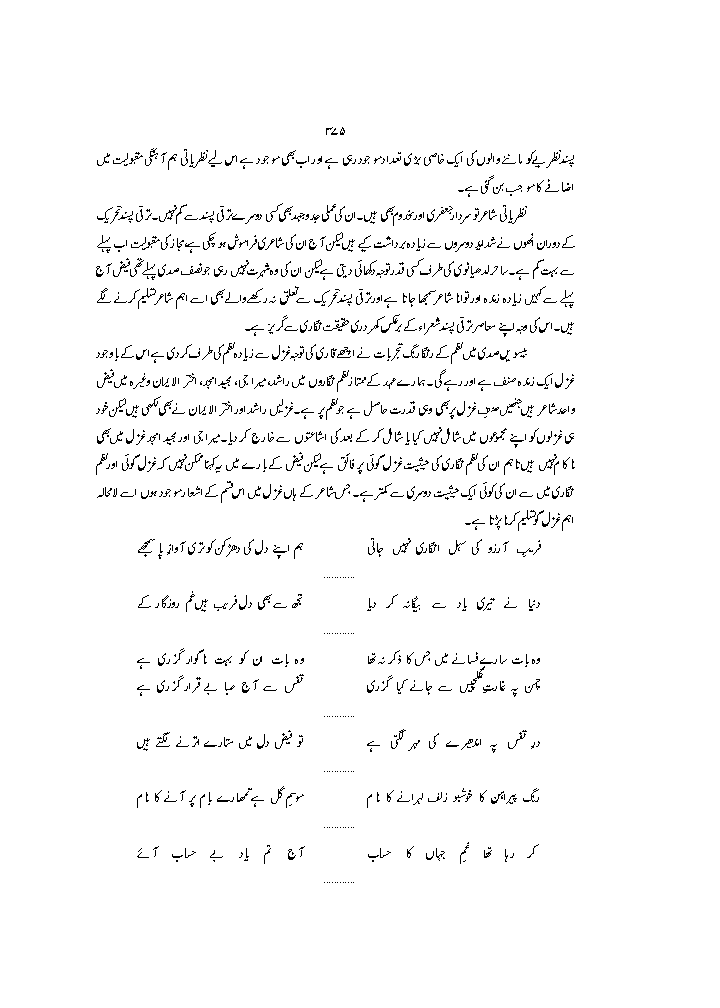 ۳۷۵
پسند نظریے کو ماننے والوں کی ایک خاصی بڑی تعداد موجود رہی ہے اور اب بھی موجود ہے اس لیے نظریاتی ہم آہنگی مقبولیت میں
اضافے کا موجب بن گئی ہے۔
نظریاتی شاعر تو سردار جعفری اور مخدوم بھی ہیں۔ ان کی عملی جدوجہد بھی کسی دوسرے ترقی پسند سے کم نہیں۔ ترقی پسند تحریک
کے دوران انھوں نے شدائد دوسروں سے زیادہ برداشت کیے ہیں لیکن آج ان کی شاعری فراموش ہو چکی ہے مجاز کی مقبولیت اب پہلے
سے بہت کم ہے۔ ساحر لدھیانوی کی طرف کسی قدر توجہ دکھائی دیتی ہے لیکن ان کی وہ شہرت نہیں رہی جو نصف صدی پہلے تھی فیض آج
پہلے سے کہیں زیادہ زندہ اور توانا شاعر سمجھا جاتا ہے اور ترقی پسند تحریک سے تعلق نہ رکھنے والے بھی اسے اہم شاعر تسلیم کرنے لگے
ہیں۔ اس کی وجہ اپنے معاصر ترقی پسند شعراء کے برعکس کھردری حقیقت نگاری سے گریز ہے۔
بیسویں صدی میں نظم کے رنگا رنگ تجربات نے اچھے قاری کی توجہ غزل سے زیادہ نظم کی طرف کر دی ہے اس کے باوجود
غزل ایک زندہ صنف ہے اور رہے گی۔ ہمارے عہد کے ممتاز نظم نگاروں میں راشد، میرا جی، مجید امجد، اختر الایمان وغیرہ میں فیض
واحد شاعر ہیں جنھیں صنفِ غزل پر بھی وہی قدرت حاصل ہے جو نظم پر ہے۔ غزلیں راشد اور اختر الایمان نے بھی لکھی ہیں لیکن خود
ہی غزلوں کو اپنے مجموعوں میں شامل نہیں کیا یا شامل کر کے بعد کی اشاعتوں سے خارج کر دیا۔ میرا جی اور مجید امجد غزل میں بھی
ناکام نہیں ہیں تاہم ان کی نظم نگاری کی حیثیت غزل گوئی پر فائق ہے لیکن فیض کے بارے میں یہ کہنا ممکن نہیں کہ غزل گوئی اور نظم
نگاری میں سے ان کی کوئی ایک حیثیت دوسری سے کمتر ہے۔ جس شاعر کے ہاں غزل میں اس قسم کے اشعار موجود ہوں اسے لامحالہ
اہم غزل گو تسلیم کرنا پڑتا ہے۔
فریبِ آرزو کی سہل انگاری نہیں جاتی ہم اپنے دل کی دھڑکن کو تری آوازِ پا سمجھے
............
دنیا نے تیری یاد سے بیگانہ کر دیا تجھ سے بھی دل فریب ہیں غم روزگار کے
............
وہ بات سارے فسانے میں جس کا ذکر نہ تھا وہ بات ان کو بہت ناگوار گزری ہے
چمن پہ غارتِ گلچیں سے جانے کیا گزری قفس سے آج صبا بے قرار گزری ہے
............
درِ قفس پہ اندھیرے کی مہر لگتی ہے تو فیض دل میں ستارے اترنے لگتے ہیں
............
رنگ پیراہن کا خوشبو زلف لہرانے کا نام موسمِ گل ہے تمھارے بام پر آنے کا نام
............
کر رہا تھا غمِ جہاں کا حساب آج تم یاد بے حساب آئے
............